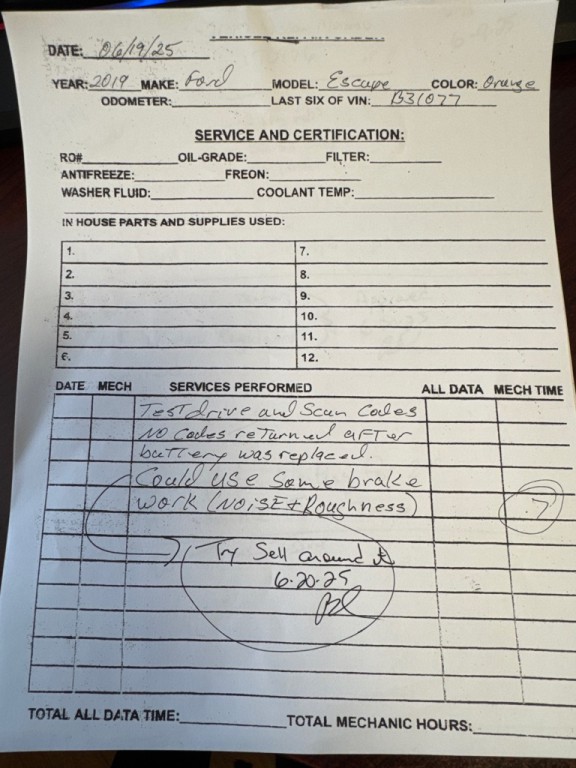 DATE: 06/19/25
YEAR: 2019 MAKE: Ford MODEL: Escape COLOR: Orange
ODOMETER: LAST SIX OF VIN: B31077
SERVICE AND CERTIFICATION:
RO# OIL-GRADE: FILTER:
ANTIFREEZE: FREON:
WASHER FLUID: COOLANT TEMP:
IN HOUSE PARTS AND SUPPLIES USED:
1. 7.
2. 8.
3. 9.
4. 10.
5. 11.
6. 12.
DATE MECH SERVICES PERFORMED ALL DATA MECH TIME
Test drive and Scan Codes
NO Codes returned after
battery was replaced.
Could use some brake
work (NOISE + Roughness) .7
Try Sell around it
6-20-25
TOTAL ALL DATA TIME: TOTAL MECHANIC HOURS: